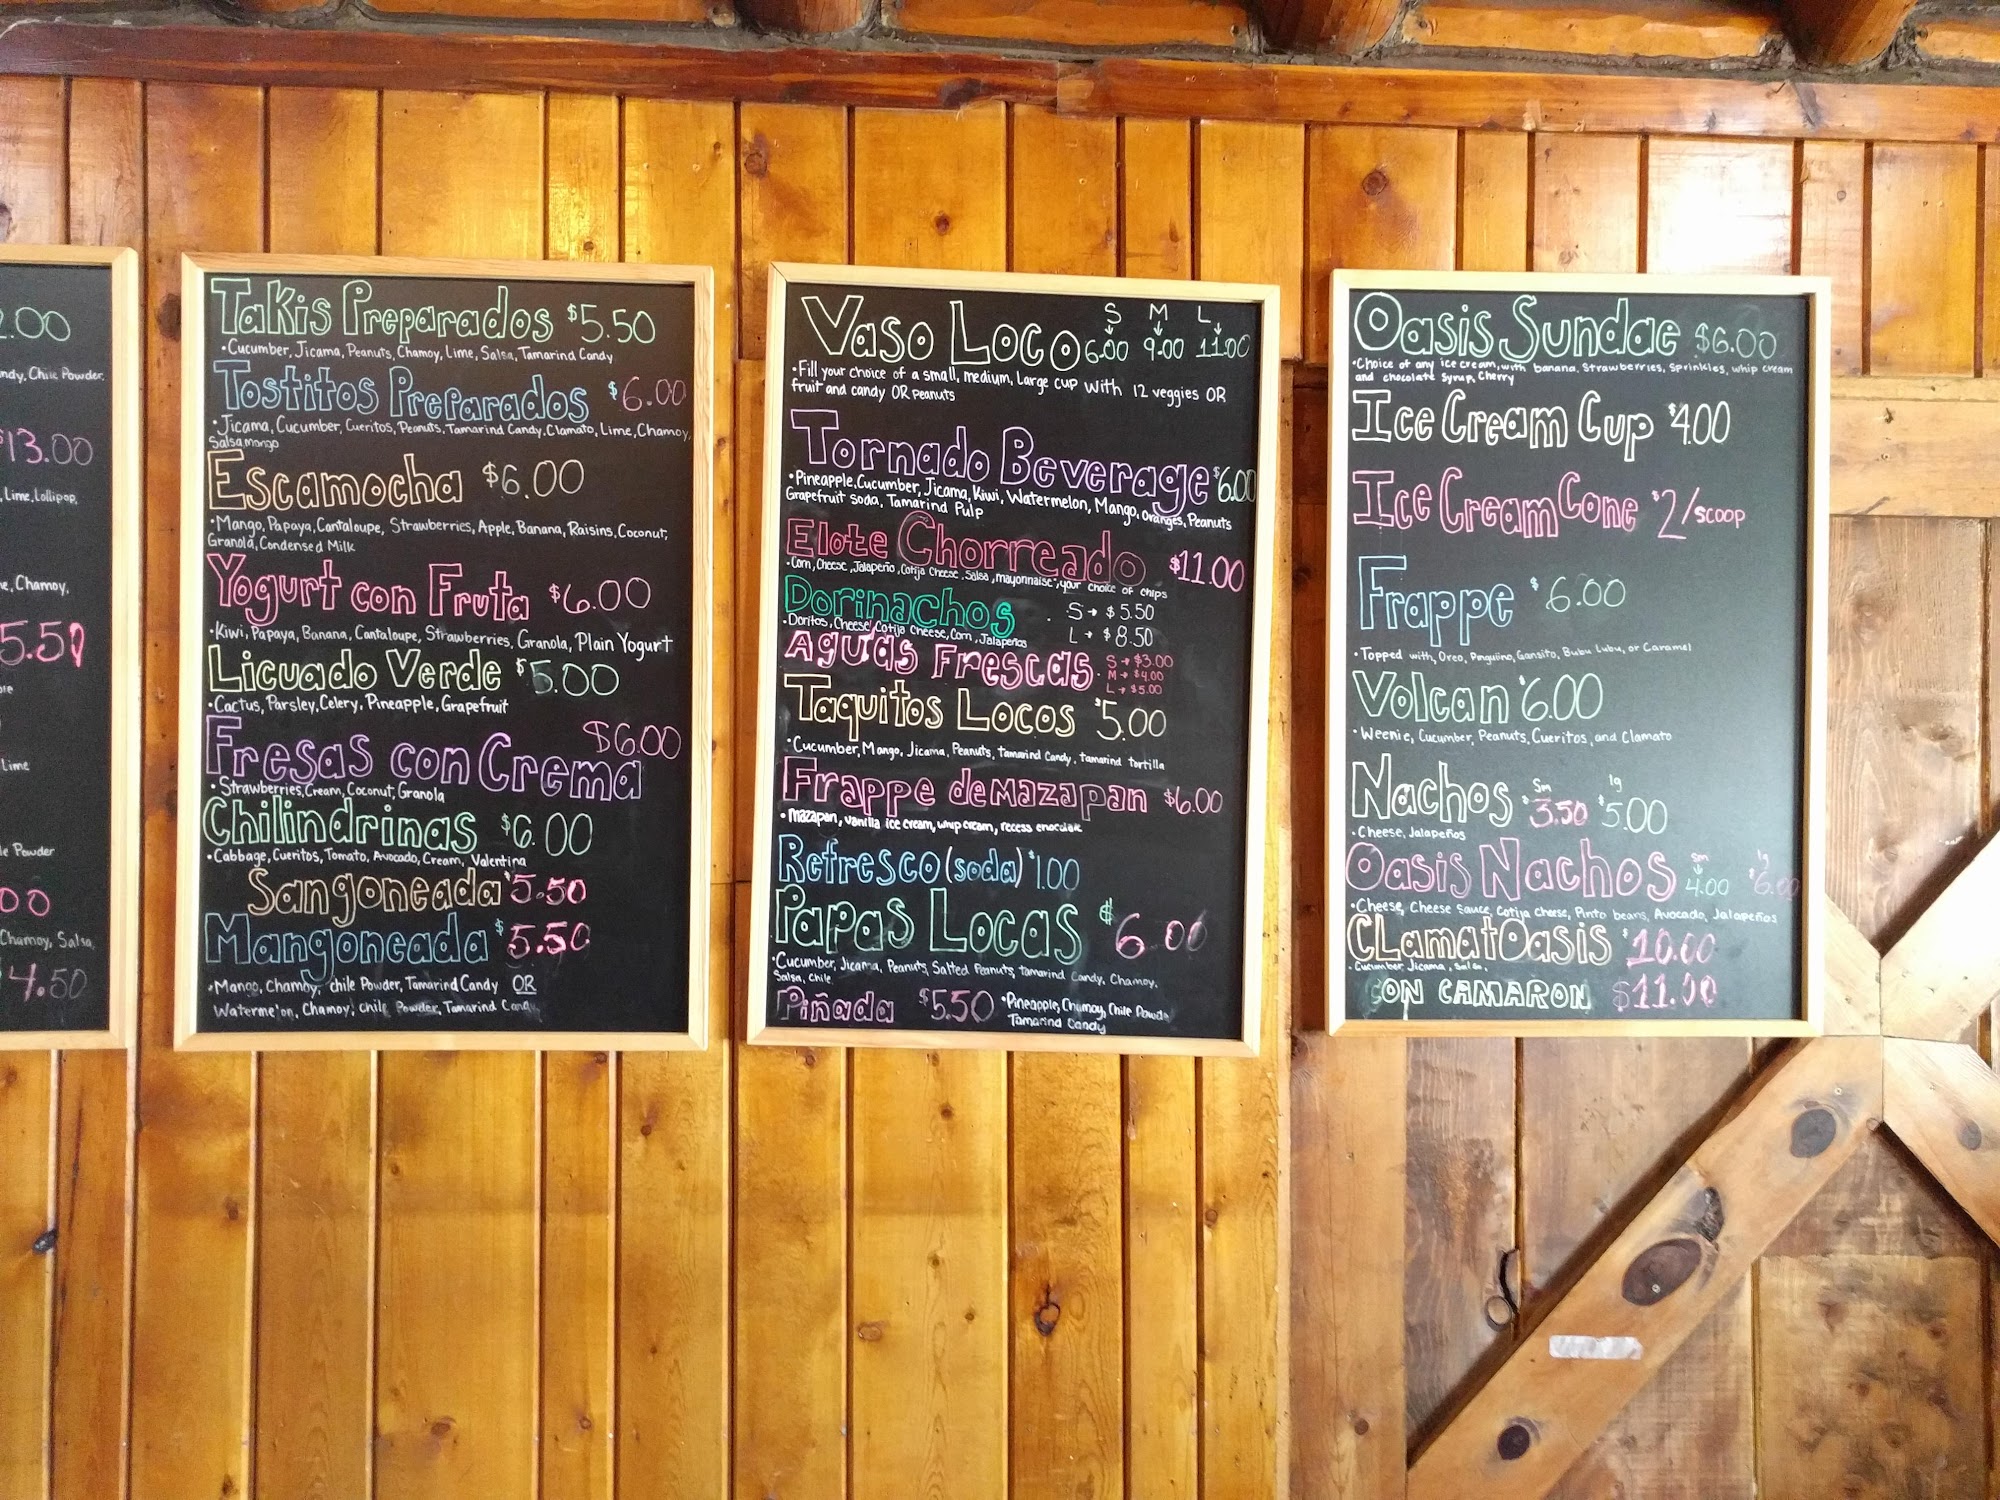 2.00
ndy, Chile Powder,
$13.00
, Lime, Lollipop,
e, Chamoy,
5.50
Lime
le Powder
00
Chamoy, Salsa,
$4.50
Takis Preparados $5.50
•Cucumber, Jicama, Peanuts, Chamoy, Lime, Salsa, Tamarind Candy
Tostitos Preparados $6.00
•Jicama, Cucumber, Cueritos, Peanuts, Tamarind Candy, Clamato, Lime, Chamoy,
Salsa, mango
Escamocha $6.00
•Mango, Papaya, Cantaloupe, Strawberries, Apple, Banana, Raisins, Coconut,
Granola, Condensed Milk
Yogurt con Fruta $6.00
•Kiwi, Papaya, Banana, Cantaloupe, Strawberries, Granola, Plain Yogurt
Licuado Verde $5.00
•Cactus, Parsley, Celery, Pineapple, Grapefruit
Fresas con Crema $6.00
•Strawberries, Cream, Coconut, Granola
Chilindrinas $6.00
•Cabbage, Cueritos, Tomato, Avocado, Cream, Valentina
Sangoneada $5.50
Mangoneada $5.50
•Mango, Chamoy, chile Powder, Tamarind Candy OR
Watermelon, Chamoy, Chile Powder, Tamarind Candy
S M L
Vaso Loco 6.00 9.00 11.00
•Fill your choice of a small, medium, Large cup with 12 veggies OR
fruit and candy OR Peanuts
Tornado Beverage $6.00
•Pineapple, Cucumber, Jicama, Kiwi, Watermelon, Mango, Oranges, Peanuts
Grapefruit Soda, Tamarind Pulp
Elote Chorreado $11.00
•Corn, Cheese, Jalapeño, Cotija Cheese, Salsa, mayonnaise, your choice of chips
Dorinachos S → $5.50
•Doritos, Cheese, Cotija Cheese, Corn, Jalapeños L → $8.50
Aguas Frescas S → $3.00
M → $4.00
L → $5.00
Taquitos Locos $5.00
•Cucumber, Mango, Jicama, Peanuts, tamarind Candy, tamarind tortilla
Frappe de Mazapan $6.00
•mazapan, vanilla ice cream, whip cream,
Refresco (soda) $1.00
Papas Locas $6.00
•Cucumber, Jicama, Peanuts, Salted Peanuts, tamarind Candy, Chamoy,
Salsa, chile
Piñada $5.50 •Pineapple, Chamoy, Chile Powde
Tamarind Candy
Oasis Sundae $6.00
•Choice of any ice cream, with banana, strawberries, sprinkles, whip cream
and chocolate syrup, Cherry
Ice Cream Cup $4.00
Ice Cream Cone $2/scoop
Frappe $6.00
•Topped with, Oreo, Pinguiino, Gansito, Bubu Lubu, or Caramel
Volcan $6.00
•Weenie, Cucumber, Peanuts, Cueritos, and Clamato
Sm lg
Nachos $3.50 $5.00
•Cheese, Jalapeños
Sm lg
Oasis Nachos 4.00 $6.00
•Cheese, Cheese sauce, Cotija cheese, Pinto beans, Avocado, Jalapeños
ClamatOasis $10.00
•Cucumber, Jicama, Salsa,
CON CAMARON $11.00